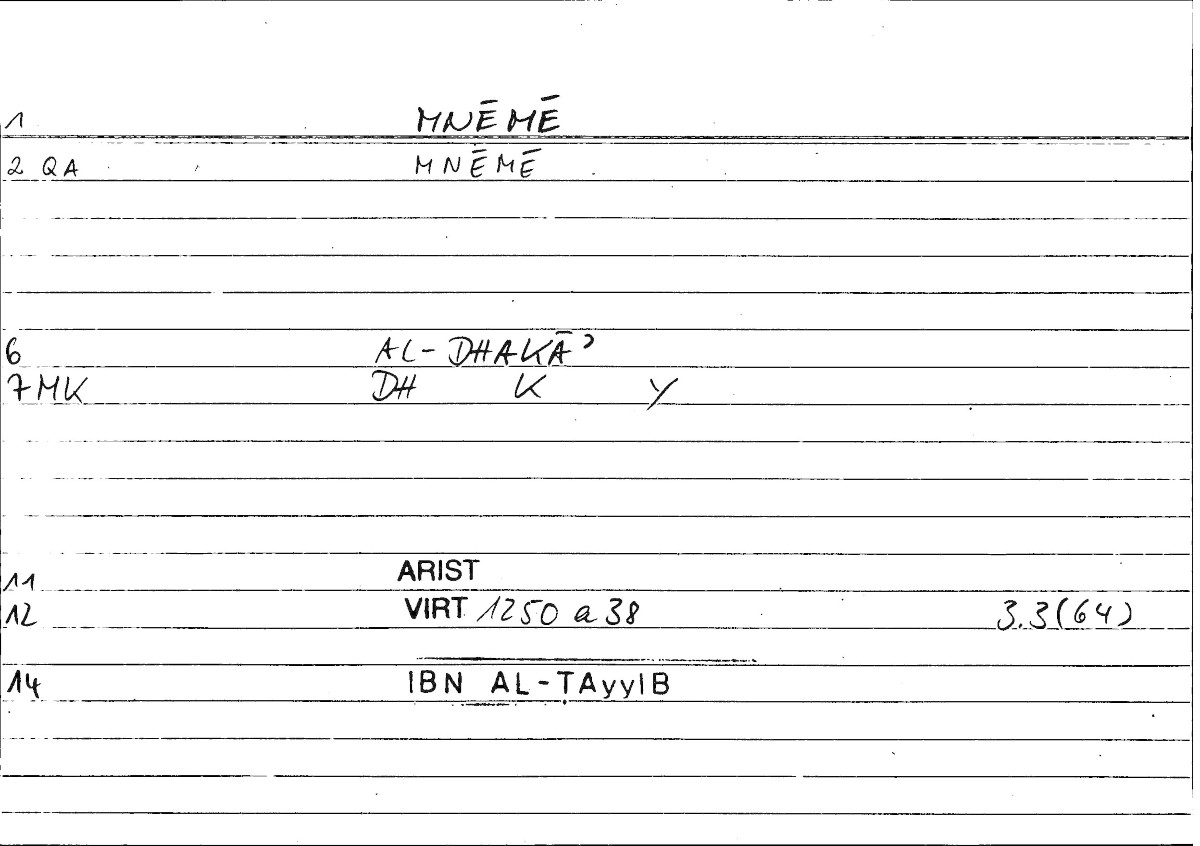 1 MNĒMĒ
2 QA MNĒMĒ
6 AL-DHAKĀʾ
7 MK DH K Y
11 ARIST
12 VIRT 1250 a 38 3.3(64)
14 IBN AL-ṬAyyIB